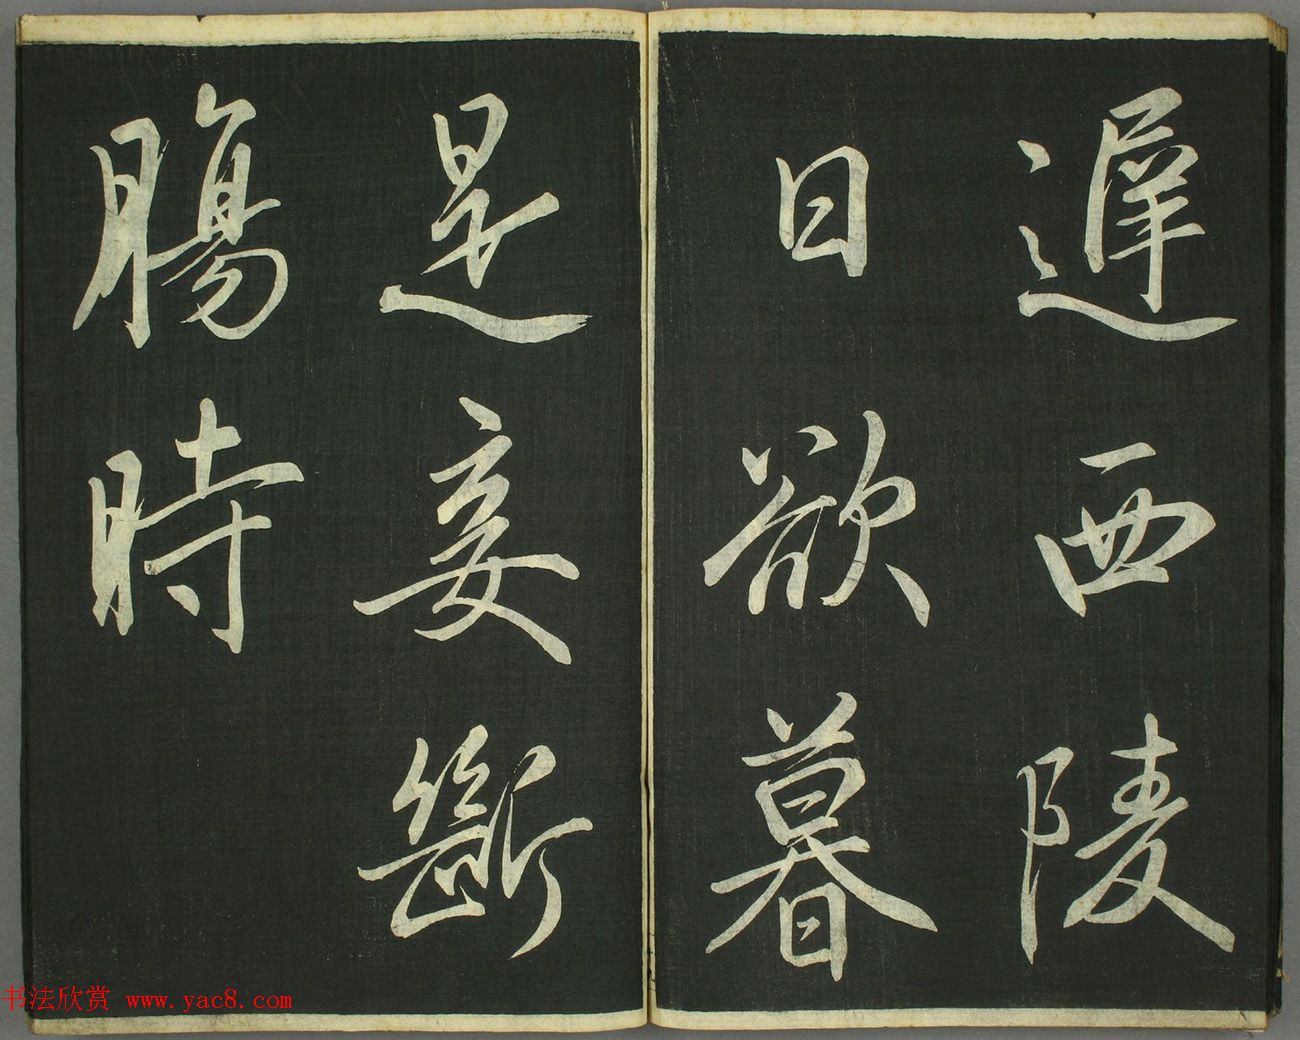 遲西陵
日欲暮
是妾斷
腸時
书法欣赏 www.yac8.com